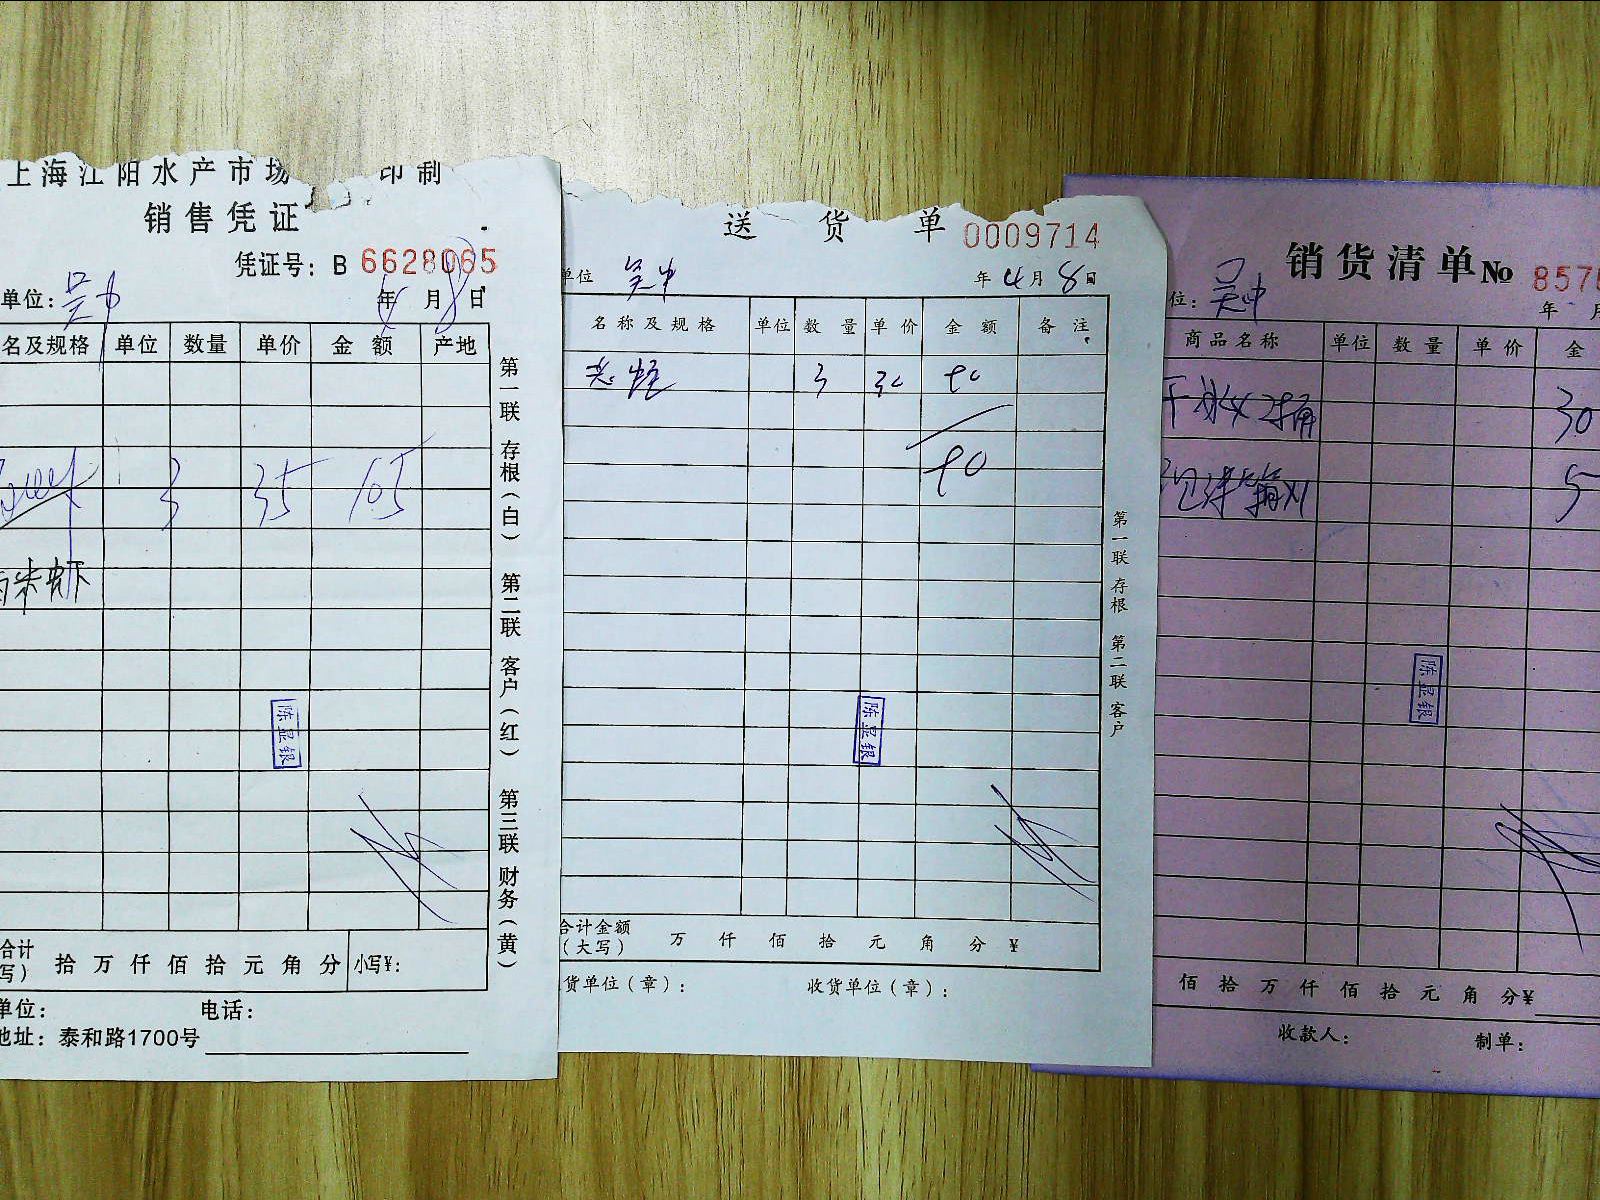 上海江阳水产市场 印制
销售凭证
凭证号：B 6628065
单位：吴中
年4月8日
名及规格 单位 数量 单价 金额 产地
3 35 105
白米虾
陈显银
合计
写） 拾万仟佰拾元角分 小写¥：
单位： 电话：
地址：泰和路1700号
第一联 存根（白） 第二联 客户（红） 第三联 财务（黄）
送货单 0009714
单位 吴中 年4月8日
名称及规格 单位 数量 单价 金额 备注
3 30 90
90
陈显银
合计金额
（大写） 万仟佰拾元角分¥
货单位（章）： 收货单位（章）：
第一联 存根 第二联 客户
销货清单 № 857
位：吴中
年 月
商品名称 单位 数量 单价 金
30
5
陈显银
佰拾万仟佰拾元角分¥
收款人： 制单：